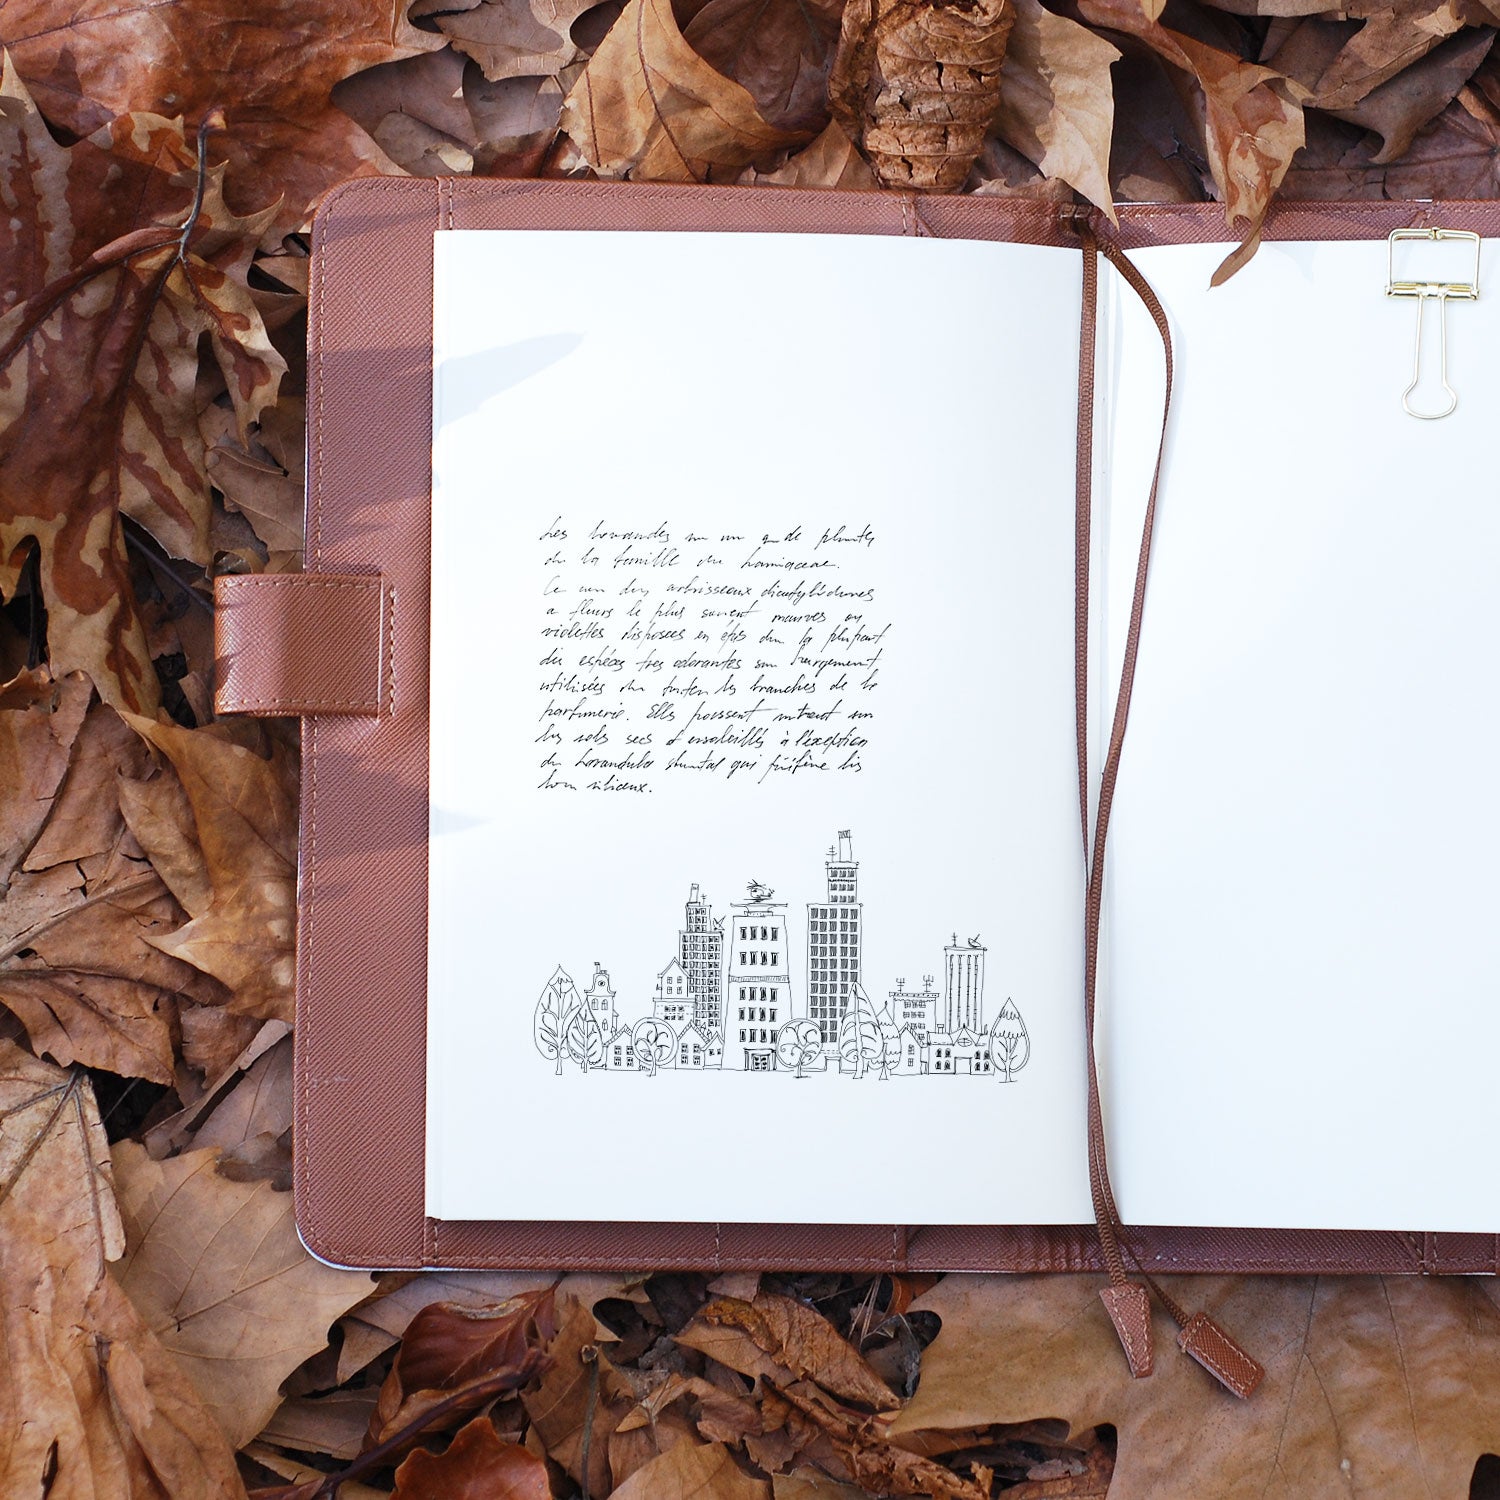 Les
de la famille des Lamiaceae.
Ce arbrisseaux dicotylédones
à fleurs le plus souvent mauves ou
violettes disposées en épis la plupart
des espèces très odorantes sont largement
utilisées toutes les branches de la
parfumerie. Elles poussent surtout sur
les sols secs ensoleillés à l'exception
de Lavandula qui préfère les
siliceux.